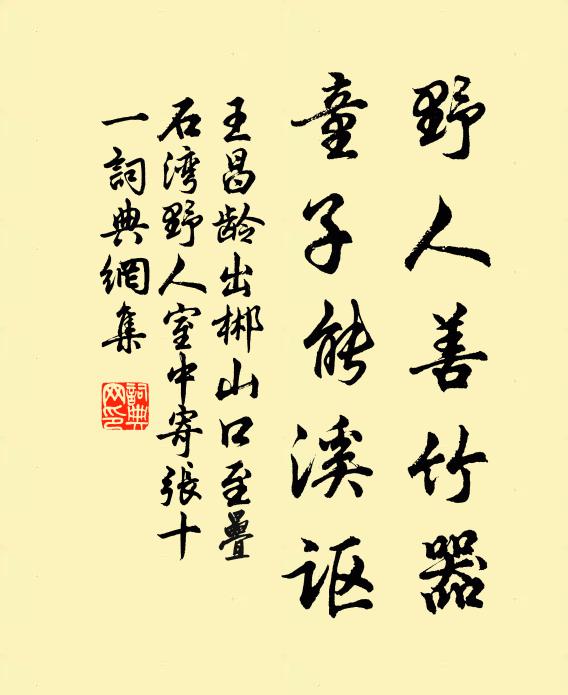 野人善竹器
童子能溪讴
王昌龄出郴山口至疊
石湾野人室中寄張十
一詞典網集
詞典
网印